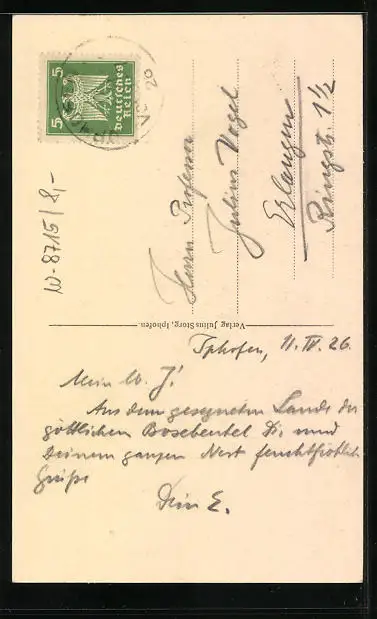 5 5
Deutsches
Reich
Herrn Professor
Julius Vogel
Erlangen
Ringstr. 1 1/2
W-8715/8,-
Verlag Julius Storg, Iphofen.
Iphofen, 11. IV. 26.
Mein l. J!
Aus dem gesegneten Lande der
göttlichen Bocksbeutel Dir und
Deinem ganzen Nest feuchtfröhliche
Grüße
Dein E.